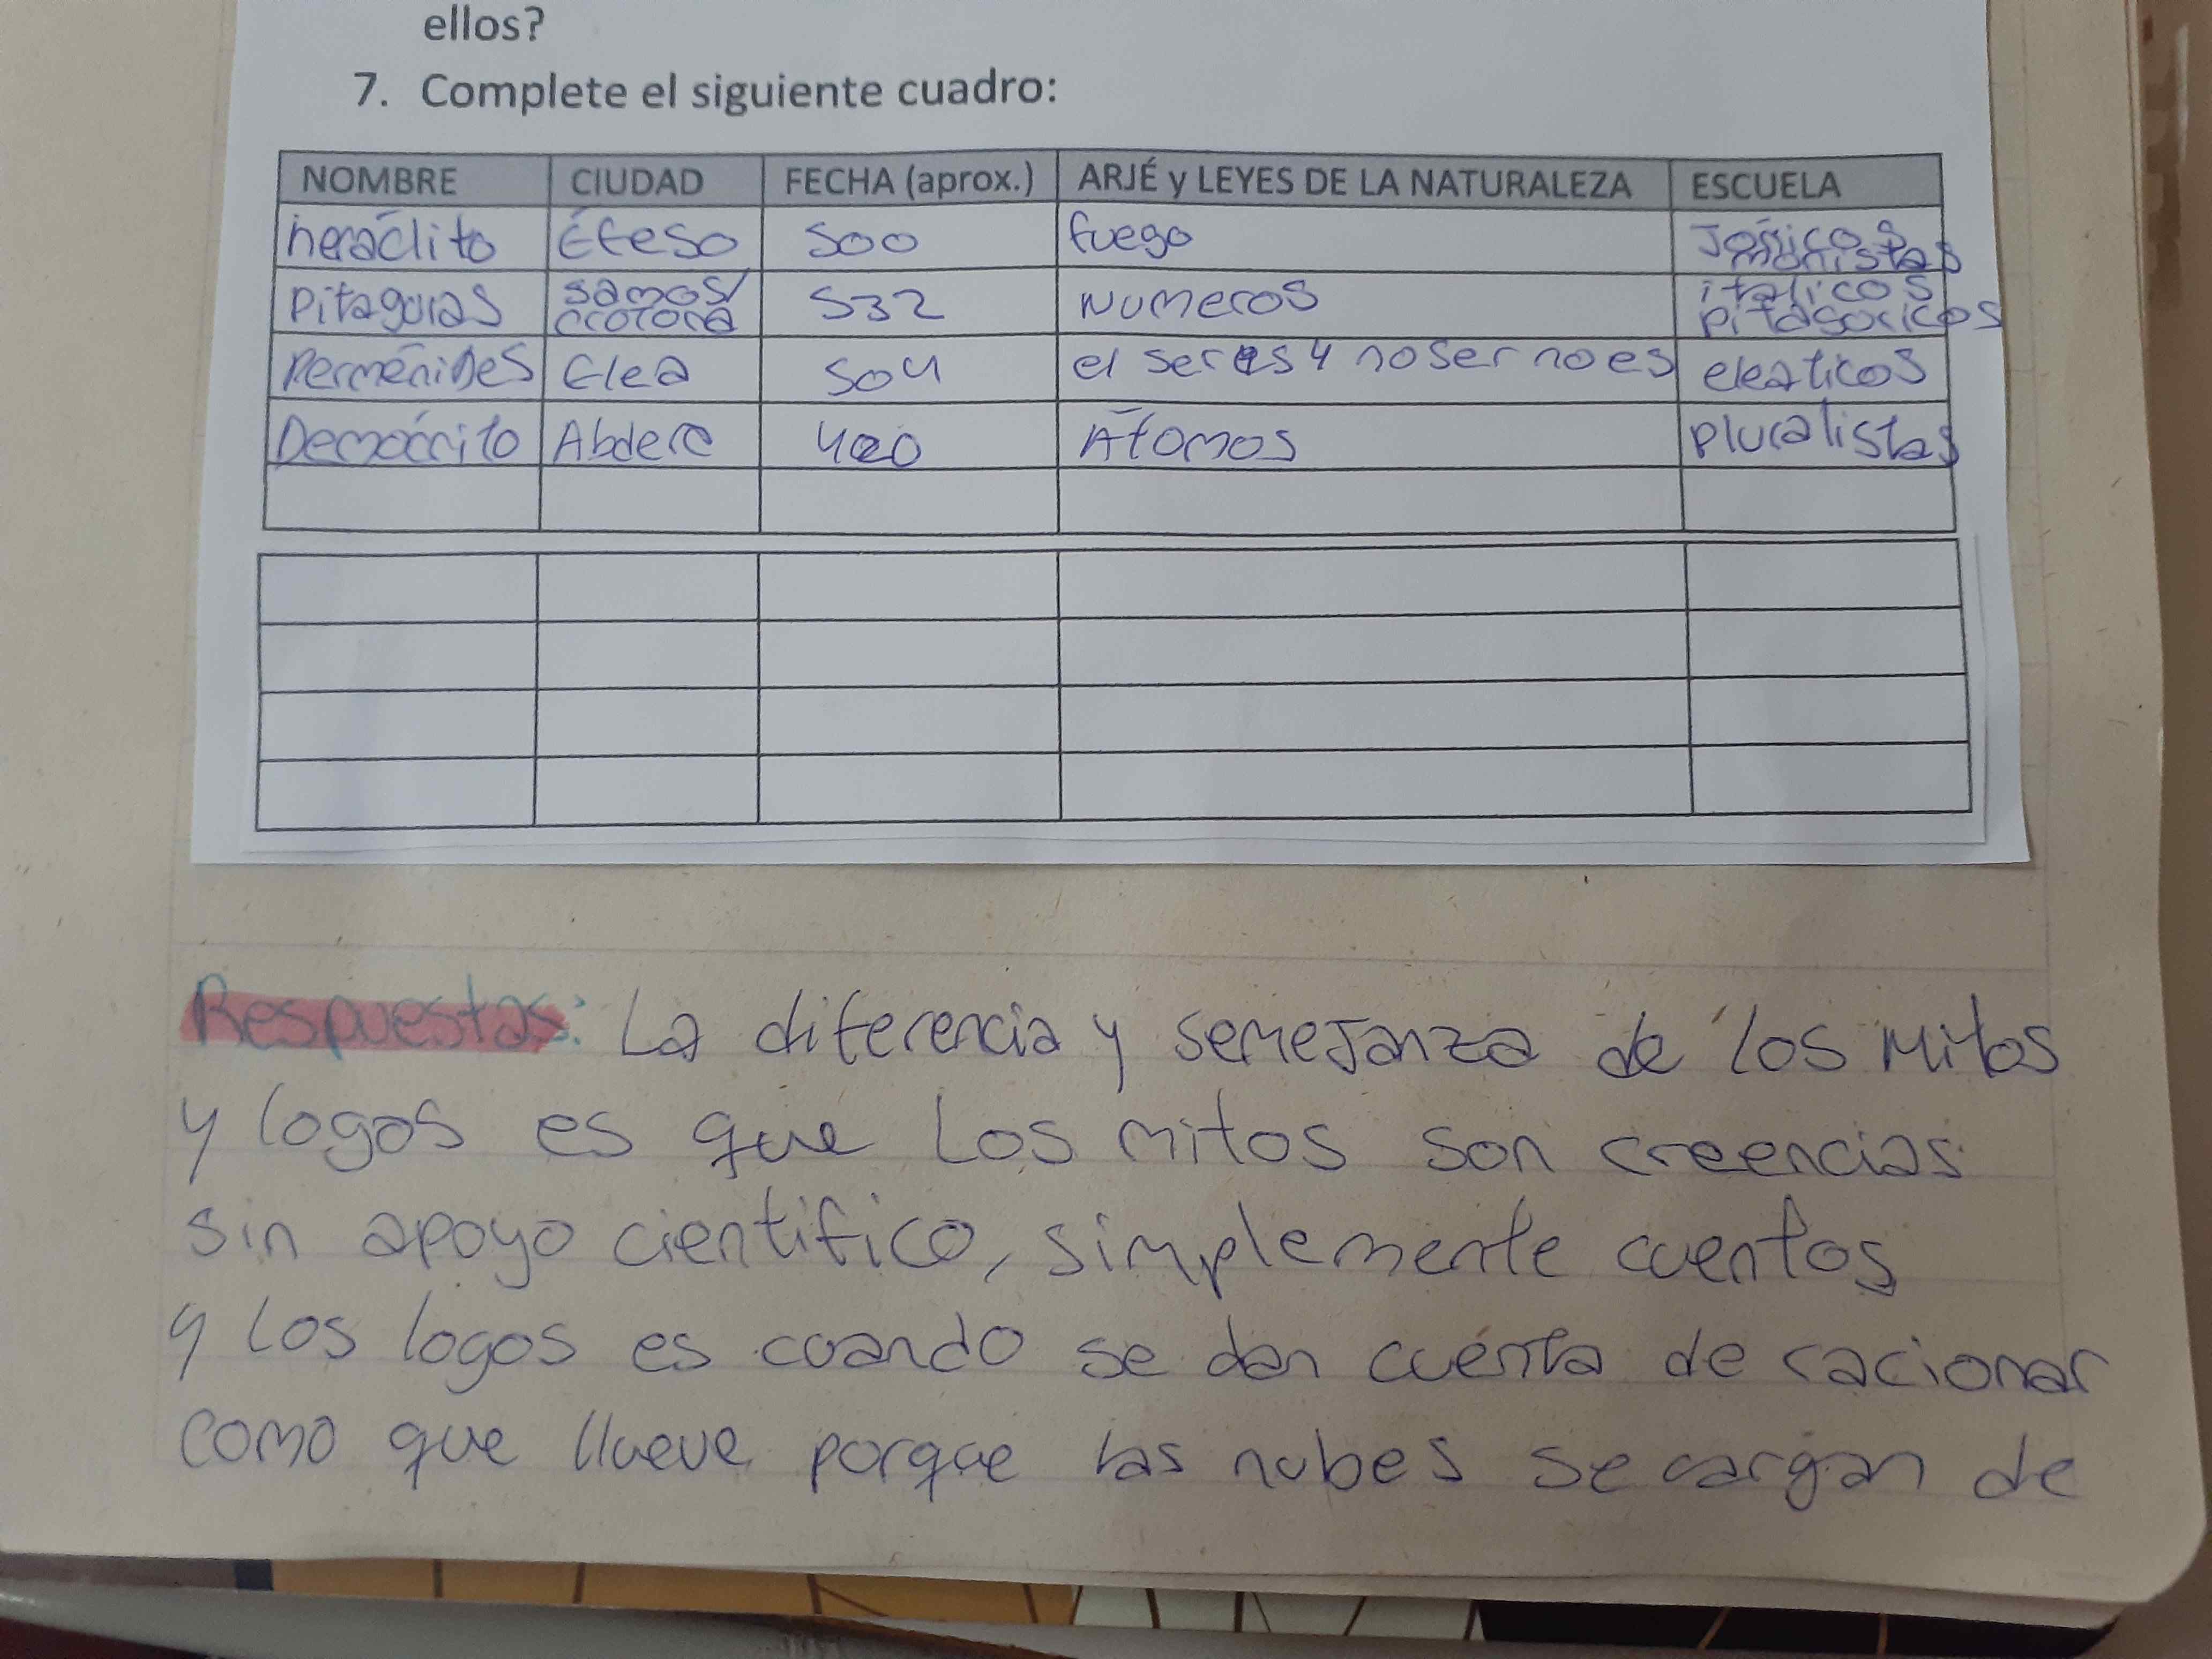 ellos?
7. Complete el siguiente cuadro:
NOMBRE CIUDAD FECHA (aprox.) ARJÉ y LEYES DE LA NATURALEZA ESCUELA
heráclito Éfeso 500 fuego Jónicos monistas
Pitagoras samos/ crotona 532 Numeros italicos pitagoricos
Perménides Elea 504 el ser es y no ser no es eleaticos
Demócrito Abdera 420 Átomos pluralistas
Respuestas: La diferencia y semejanza de los mitos
y logos es que Los mitos son creencias
sin apoyo cientifico, simplemente cuentos
y los logos es cuando se dan cuenta de racionar
como que llueve porque las nubes se cargan de